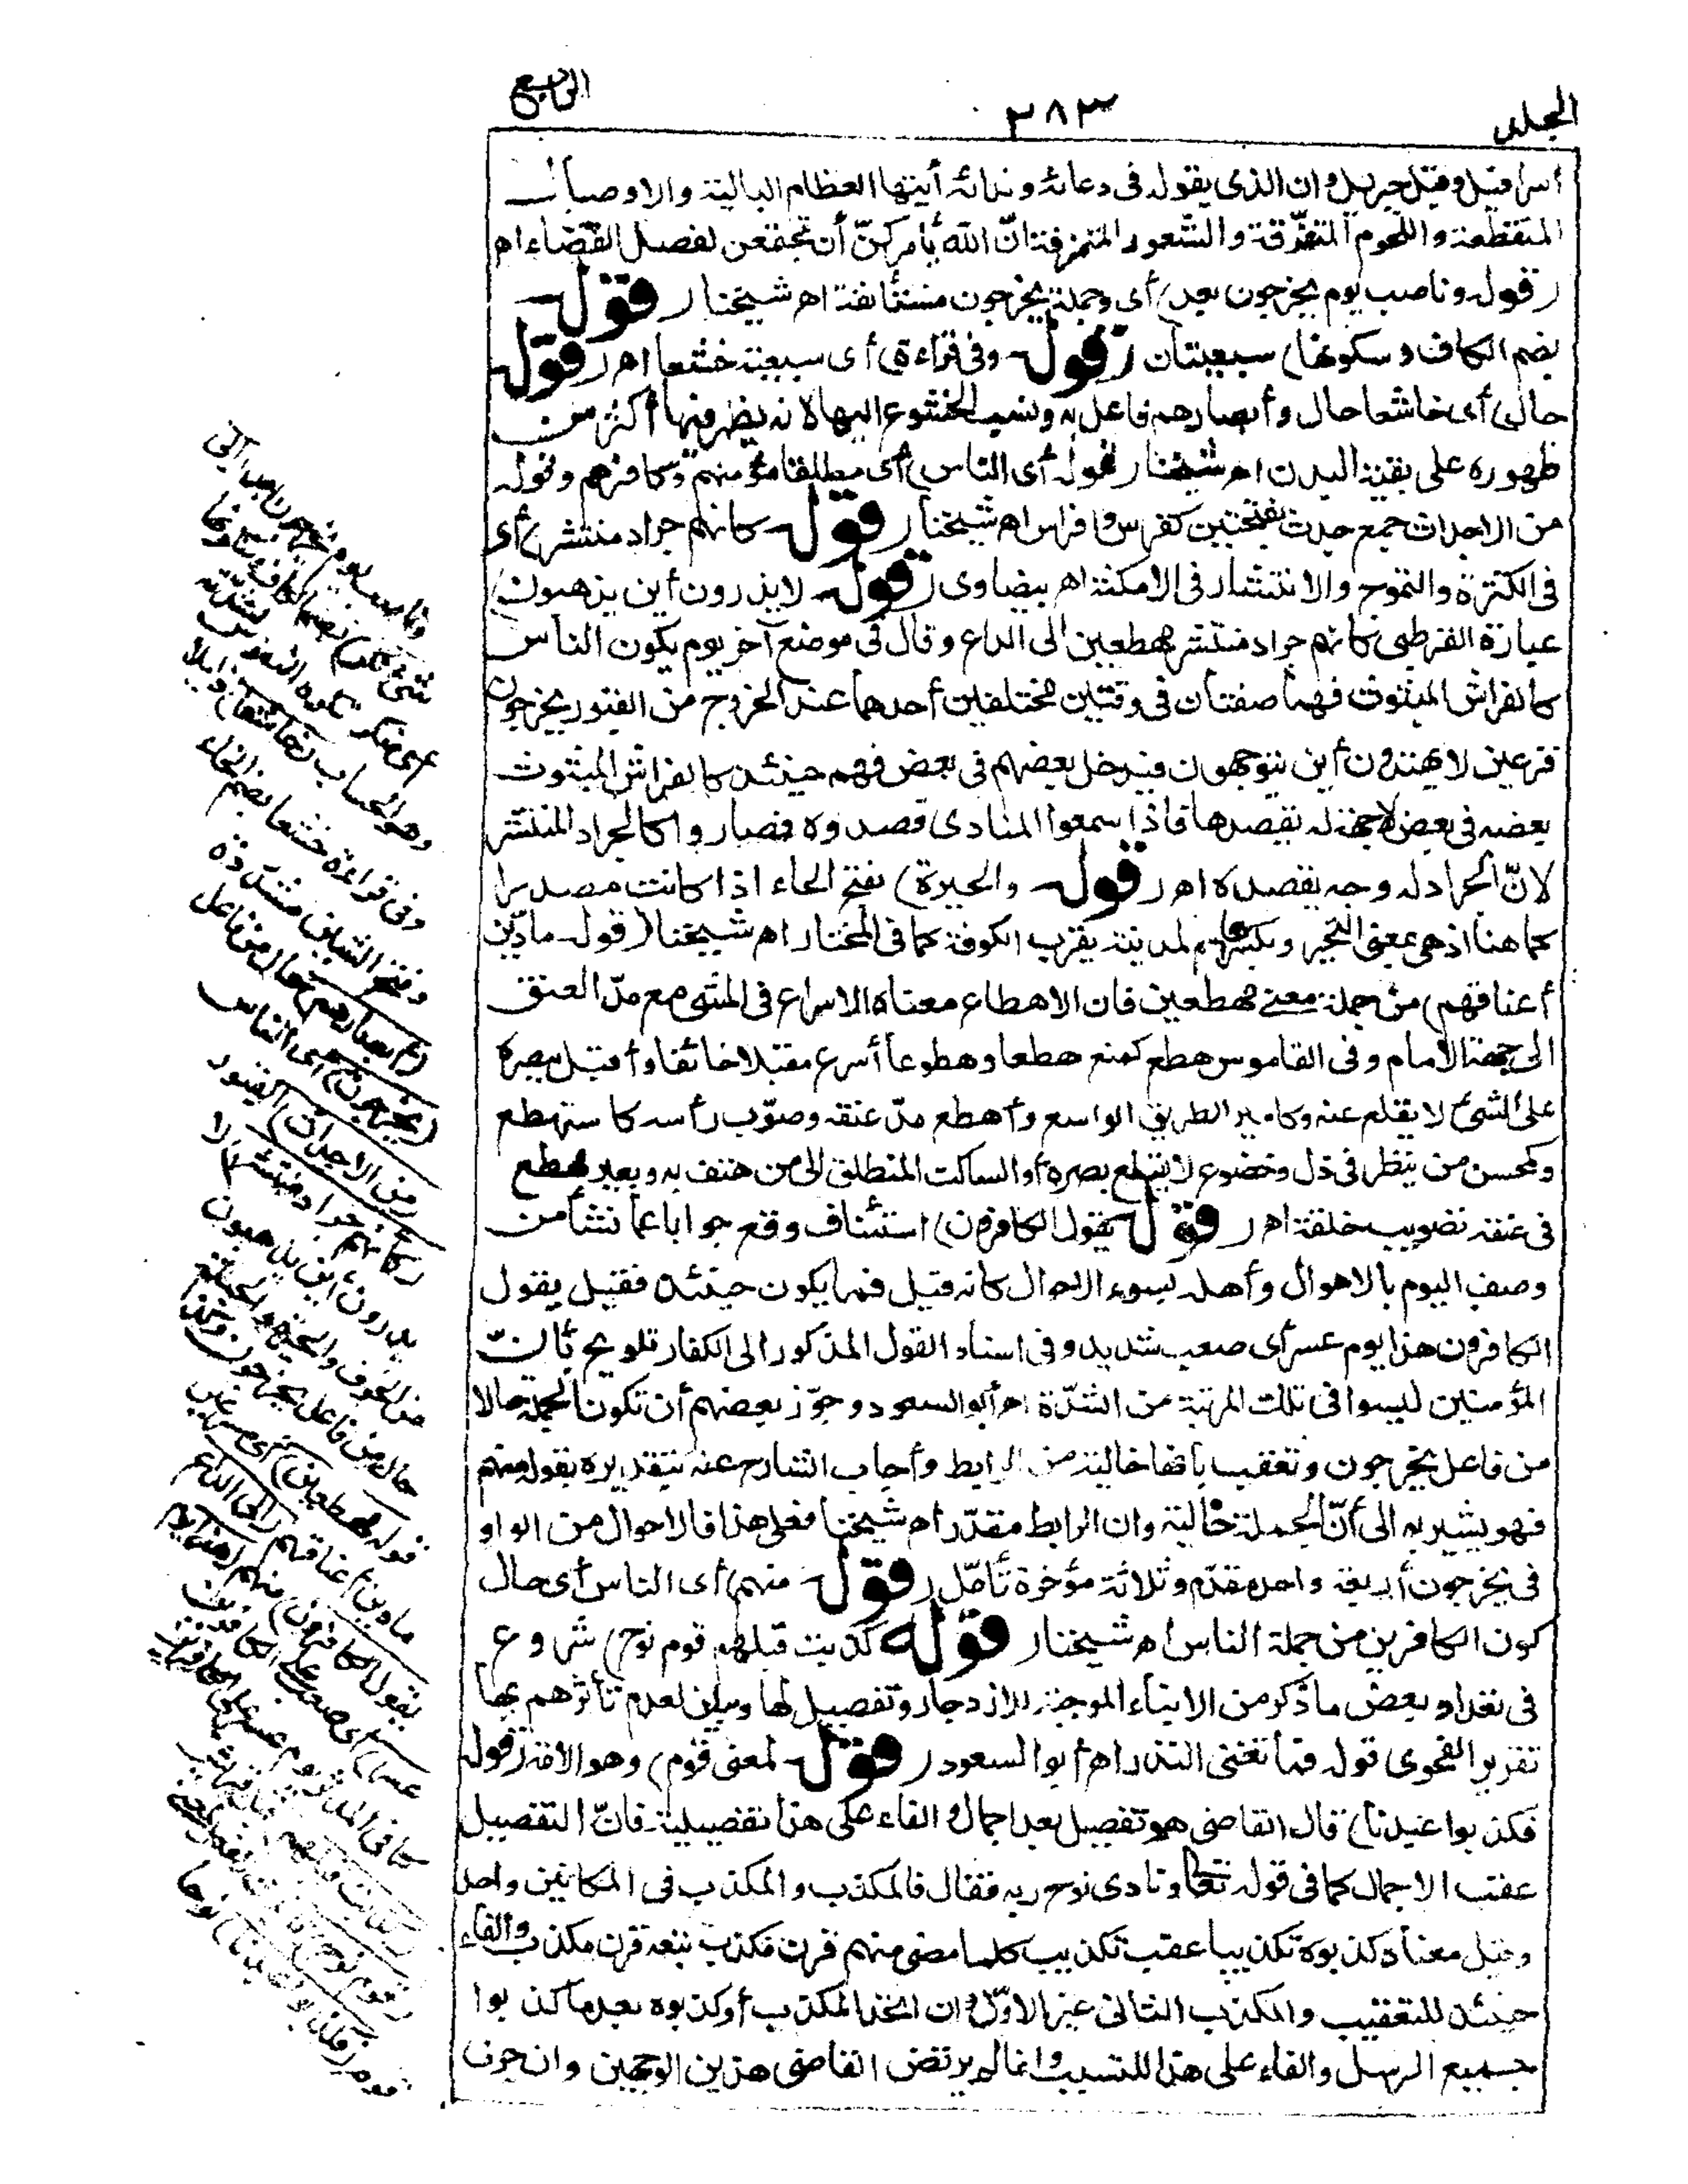 المجلد
٣٨٣
الرابع
اسرافيل وقيل جبريل وان الذي يقول في دعائه وندائه أيتها العظام البالية والاوصال
المتقطعة واللحوم المتفرقة والشعور المتمزقة انّ الله يأمركنّ أن تجتمعن لفصل القضاء اه
(قوله وناصب يوم يخرجون بعد) أى وجملة يخرجون مستأنفة اه شيخنا (قوله
بضم الكاف وسكونها) سبعيتان (قوله وفى قراءة) أى سبعية خشعا اه (قوله
حال) أى خاشعا حال وأبصارهم فاعل به ونسب الخشوع اليها لانه يظهر فيها أكثر من
ظهوره على بقية البدن اه شيخنا (قوله أى الناس) أى مطلقا مؤمنهم وكافرهم وقوله
من الاجداث جمع جدث بفتحتين كفرس وافراس اه شيخنا (قوله كانهم جراد منتشر) أى
فى الكثرة والتموج والانتشار فى الامكنة اه بيضاوى (قوله لا يدرون أين يذهبون)
عبارة القرطبى كانهم جراد منتشر مهطعين الى الداع وقال فى موضع آخر يوم يكون الناس
كالفراش المبثوث فهما صفتان فى وقتين مختلفين أحدهما عند الخروج من القبور يخرجون
فزعين لا يهتدون أين يتوجهون فيدخل بعضهم فى بعض فهم حينئذ كالفراش المبثوث
بعضه فى بعض لا جهة له يقصدها فاذا سمعوا المنادى قصدوه فصاروا كالجراد المنتشر
لانّ الجراد له وجه يقصده اه (قوله والحيرة) بفتح الحاء اذا كانت مصدرا
كما هنا اذ هى بمعنى التحير وبكسرها لمدينة بقرب الكوفة كما فى المختار اه شيخنا (قوله مادّين
أعناقهم) من جملة معنى مهطعين فان الاهطاع معناه الاسراع فى المشى مع مدّ العنق
الى جهة الامام وفى القاموس هطع كمنع هطعا وهطوعا أسرع مقبلا خائفا وأقبل ببصره
على الشئ لا يقلع عنه وكامير الطريق الواسع وأهطع مدّ عنقه وصوّب رأسه كاستهطع
وكمحسن من ينظر فى ذل وخضوع لا يقلع بصره أو الساكت المنطلق الى من هتف به وبعير مهطع
فى عنقه تصويب خلقة اه (قوله يقول الكافرون) استئناف وقع جوابا عما نشأ من
وصف اليوم بالاهوال وأهله بسوء الحال كانه قيل فما يكون حينئذ فقيل يقول
الكافرون هذا يوم عسر أى صعب شديد وفى اسناد القول المذكور الى الكفار تلويح بأنّ
المؤمنين ليسوا فى تلك المرتبة من الشدّة اه أبو السعود وجوّز بعضهم أن تكون الجملة حالا
من فاعل يخرجون وتعقب بانها خالية من الرابط وأجاب الشارح عنه بتقديره بقوله منهم
فهو يشير به الى أنّ الجملة حالية وان الرابط مقدّر اه شيخنا فعلى هذا فالاحوال من الواو
فى يخرجون أربعة واحد مقدّم وثلاثة مؤخرة تأمّل (قوله منهم) أى الناس أى حال
كون الكافرين من جملة الناس اه شيخنا (قوله كذبت قبلهم قوم نوح) شروع
فى تعداد بعض ما ذكر من الانباء الموجبة للازدجار وتفصيل لها وبيان لعدم تأثرهم بها
تقريرا لفحوى قوله فما تغنى النذر اه أبو السعود (قوله لمعنى قوم) وهو الامة (قوله
فكذبوا عبدنا) قال القاضى هو تفصيل بعد اجمال والفاء على هذا تفصيلية فانّ التفصيل
عقب الاجمال كما فى قوله تعالى ونادى نوح ربه فقال فالمكذب والمكذب فى المكانين واحد
وقيل معناه كذبوه تكذيبا عقب تكذيب كلما مضى منهم قرن مكذب تبعه قرن مكذب والفاء
حينئذ للتعقيب والمكذب الثانى غير الاوّل وان اتحد المكذب أو كذبوه بعد ما كذبوا
جميع الرسل والفاء على هذا للتسبب وانما لم يرتض القاضى هذين الوجهين وان جرت
وناصب يوم يخرجون بعد (الى
شئ نكر) بضم الكاف وسكونها
أى منكر تنكره النفوس لشدّته
وهو الحساب (خاشعا) ذليلا
وفى قراءة خشعا بضم الخاء
وفتح الشين مشدّدة
(أبصارهم) حال من فاعل
(يخرجون) أى الناس
(من الاجداث) القبور
(كأنهم جراد منتشر) لا
يدرون أين يذهبون
من الخوف والحيرة والجملة
حال من فاعل يخرجون وكذا
قوله (مهطعين) أى مسرعين
مادين أعناقهم (الى الداع
يقول الكافرون) منهم (هذا يوم
عسر) أى صعب على الكافرين
كما فى المدثر يوم عسير على الكافرين